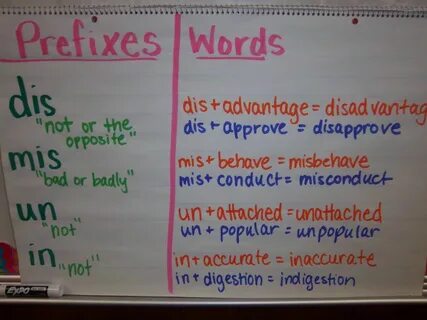 Prefixes
Words
dis
"not or the
opposite"
dis + advantage = disadvantag
dis + approve = disapprove
mis
"bad or badly"
mis + behave = misbehave
mis + conduct = misconduct
un
"not"
un + attached = unattached
un + popular = unpopular
in
"not"
in + accurate = inaccurate
in + digestion = indigestion
EXPO